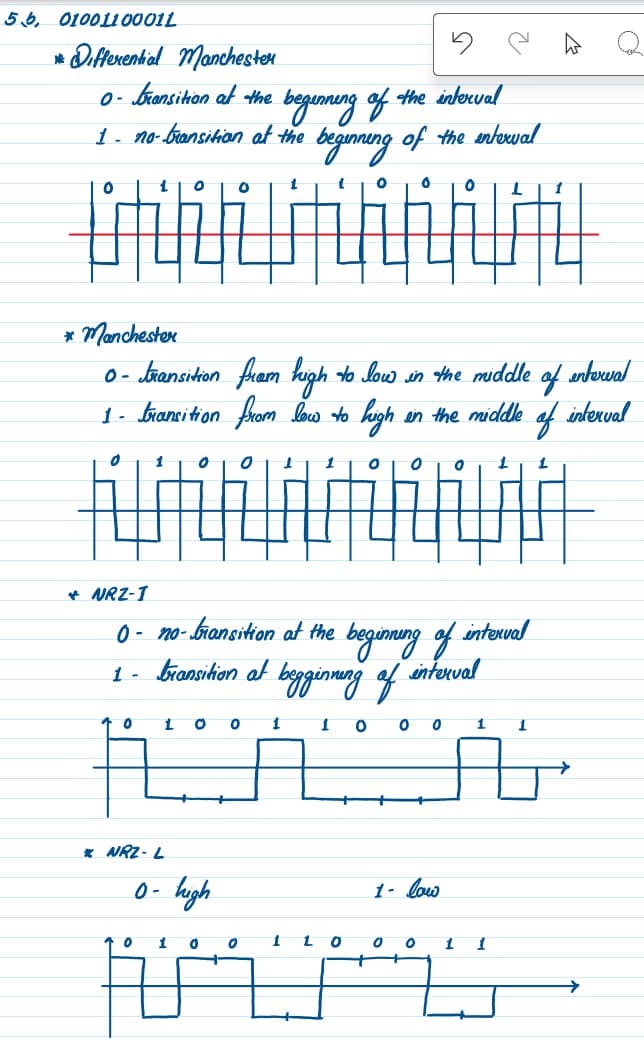 5.b. 01001100011
* Differential Manchester
0 - transition at the beginning of the interval
1 - no-transition at the beginning of the interval
0 1 0 0 1 1 0 0 0 1 1
* Manchester
0 - transition from high to low in the middle of interval
1 - transition from low to high in the middle of interval
0 1 0 0 1 1 0 0 0 1 1
* NRZ-I
0 - no-transition at the beginning of interval
1 - transition at begginning of interval
0 1 0 0 1 1 0 0 0 1 1
* NRZ-L
0 - high 1 - low
0 1 0 0 1 1 0 0 0 1 1